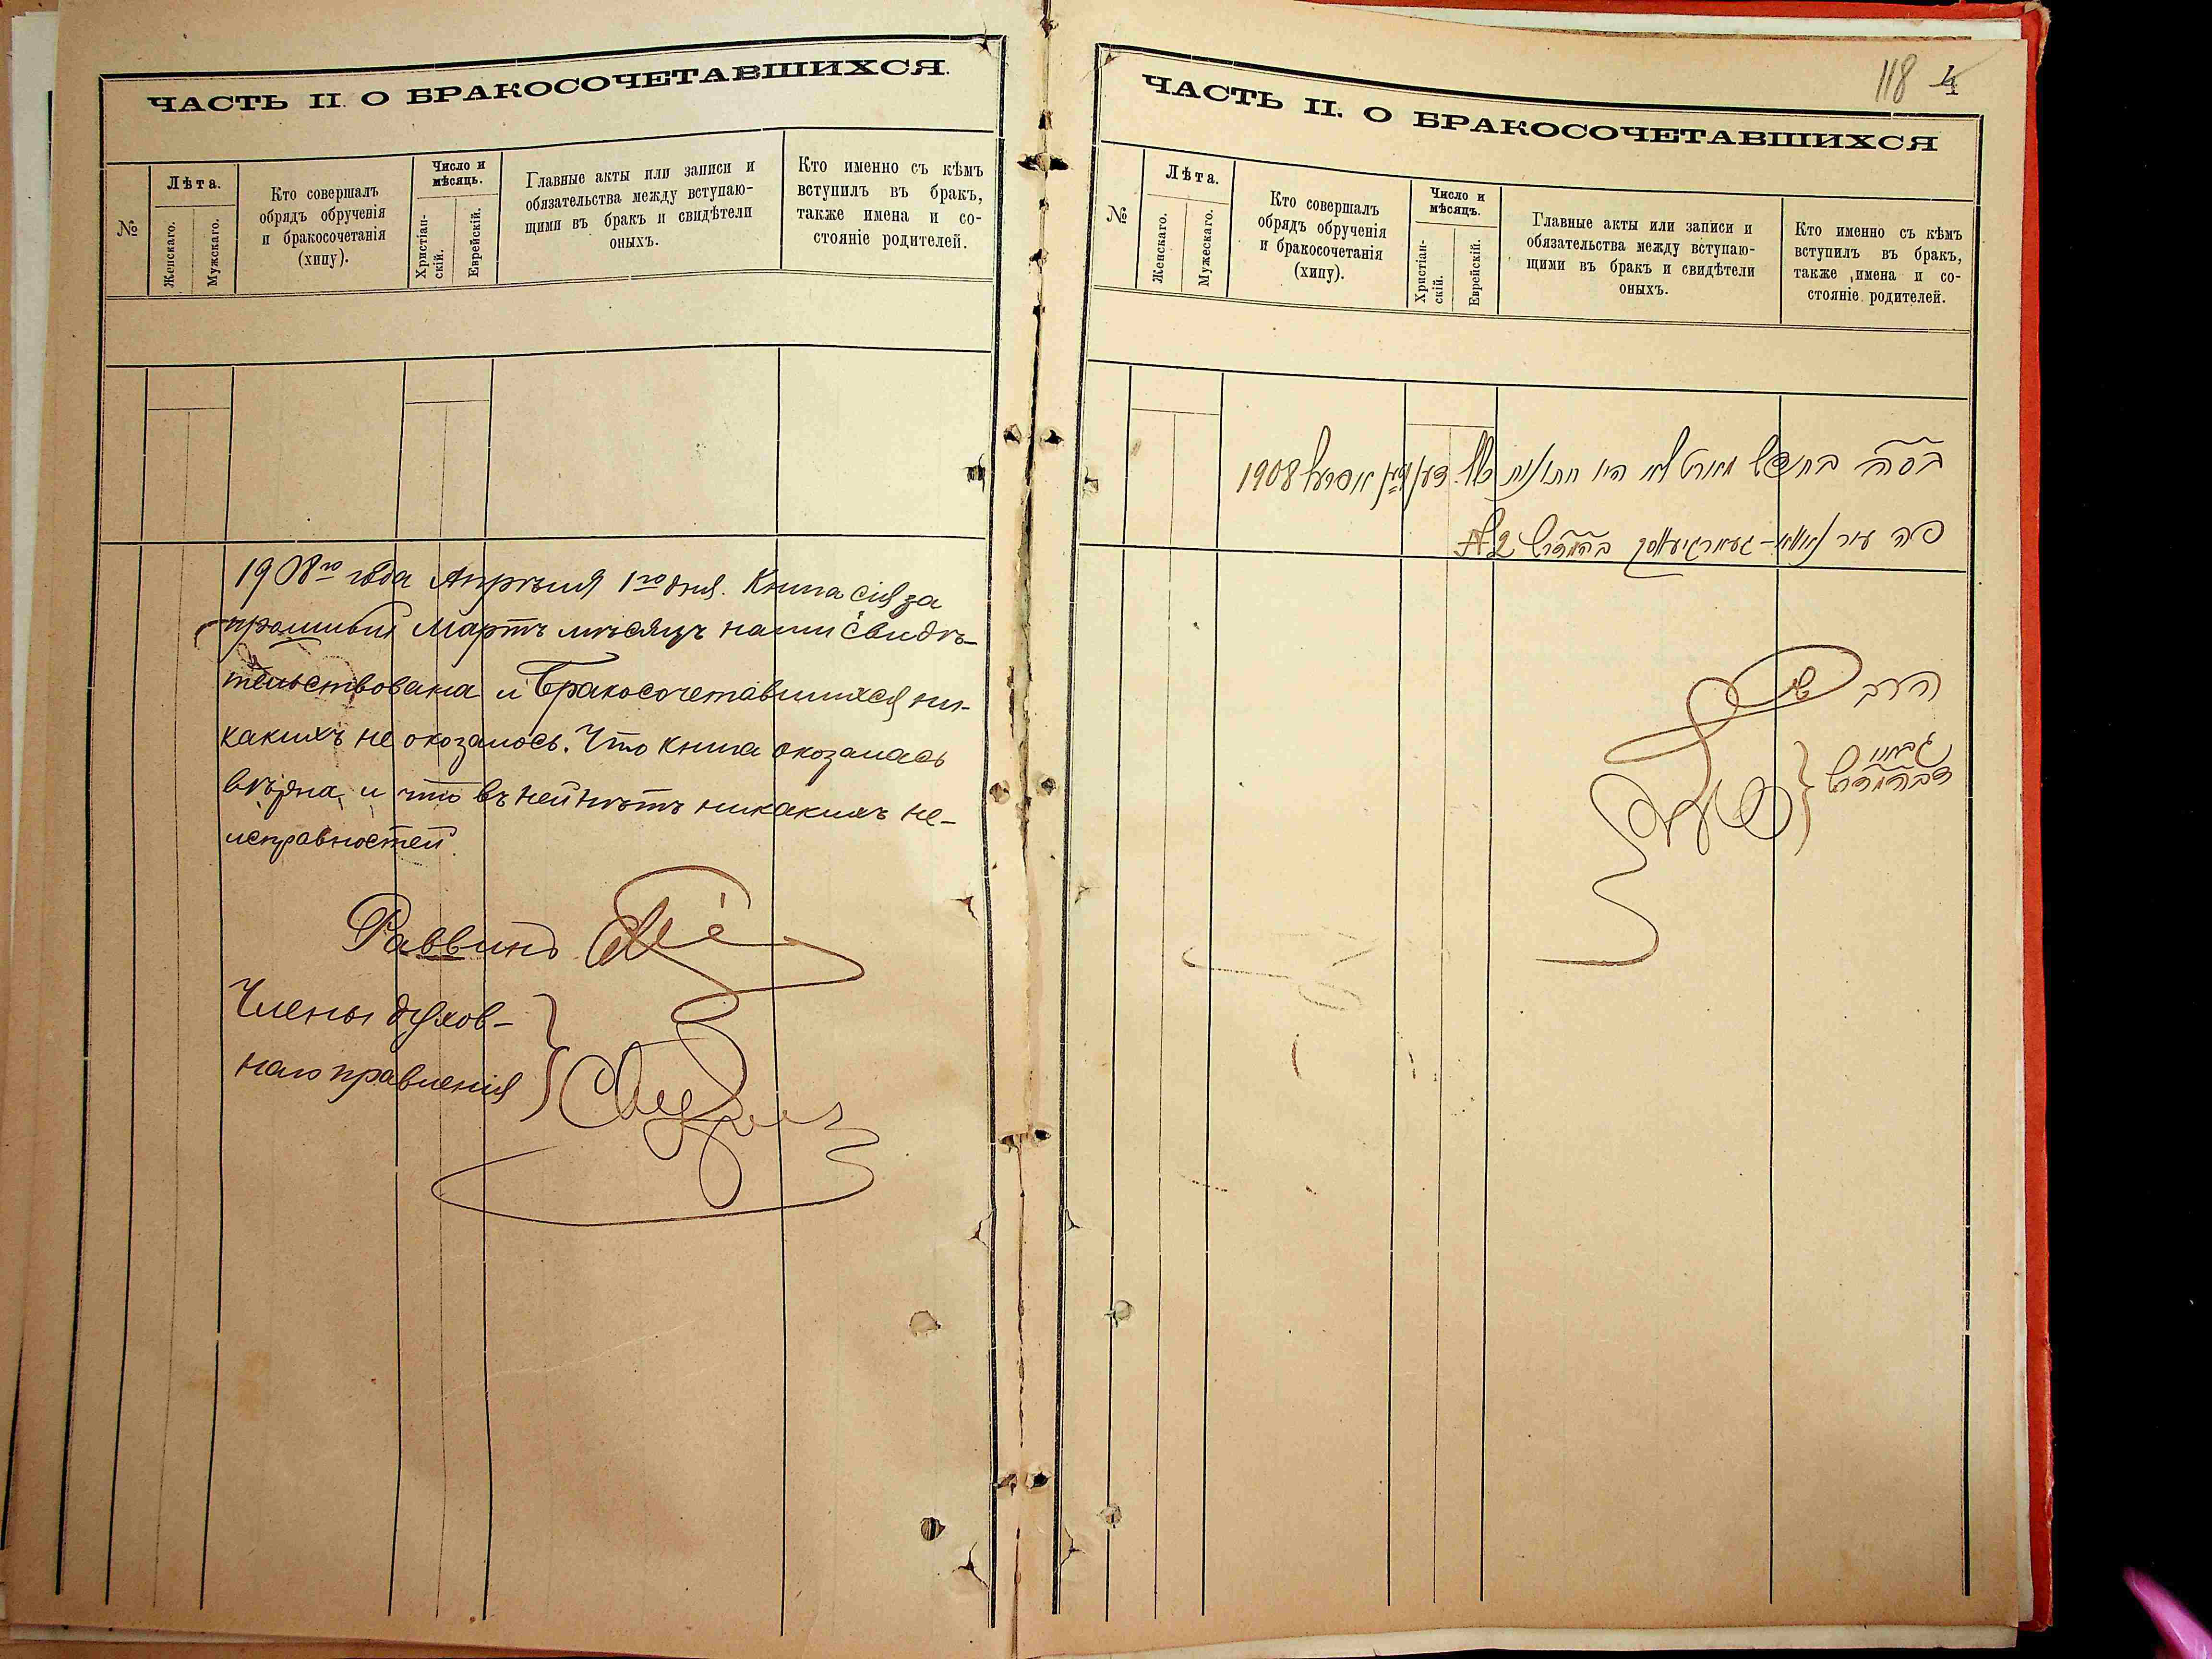 ЧАСТЬ II. О БРАКОСОЧЕТАВШИХСЯ.
№
Лѣта.
Женскаго.
Мужескаго.
Кто совершалъ
обрядъ обрученія
и бракосочетанія
(хипу).
Число и
мѣсяцъ.
Христіан-
скій.
Еврейскій.
Главные акты или записи и
обязательства между вступаю-
щими въ бракъ и свидѣтели
оныхъ.
Кто именно съ кѣмъ
вступилъ въ бракъ,
также имена и со-
стояніе родителей.
1908го года Апрѣля 1го дня. Книга сія за
прошлый Мартъ мѣсяцъ нами свидѣ-
тельствована и Бракосочетавшихся ни-
какихъ не оказалось. Что книга оказалась
вѣрна и что въ ней нѣтъ никакихъ не-
исправностей.
Раввинъ
Члены духов-
наго правленія
118 4
ЧАСТЬ II. О БРАКОСОЧЕТАВШИХСЯ
№
Лѣта.
Женскаго.
Мужескаго.
Кто совершалъ
обрядъ обрученія
и бракосочетанія
(хипу).
Число и
мѣсяцъ.
Христіан-
скій.
Еврейскій.
Главные акты или записи и
обязательства между вступаю-
щими въ бракъ и свидѣтели
оныхъ.
Кто именно съ кѣмъ
вступилъ въ бракъ,
также имена и со-
стояніе родителей.
בחדש מארט לא היו חתונות 1908
פה עיר בהמדרש 2
הרב
גבאי
דבהמדרש